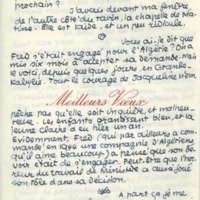 prochain ? J'aurais devant ma fenêtre,
de l'autre côté du ravin, la chapelle de Ma-
rine. Elle est laide, et un peu ridicule.
Vous ai-je dit que
Fred s'était engagé pour l'Algérie ? On a
mis six mois à accepter sa demande. Mais
le voici, depuis quelques jours, en Grande-
Kabylie. Tout le courage de Jacqueline n'em-
Meilleurs Vœux
pêche pas qu'elle soit inquiète, et malheu-
reuse. Les enfants grandissent bien, et la
jeune Claire a eu hier un an.
Évidemment, Fred (qui par ailleurs a com-
mandé en 1944 une compagnie d'Algériens,
qu'il aime beaucoup) a pensé que son de-
voir était de s'engager. Peut-être que l'hor-
reur du travail de Ministère a aussi joué
son rôle dans sa décision.
A part ça je me